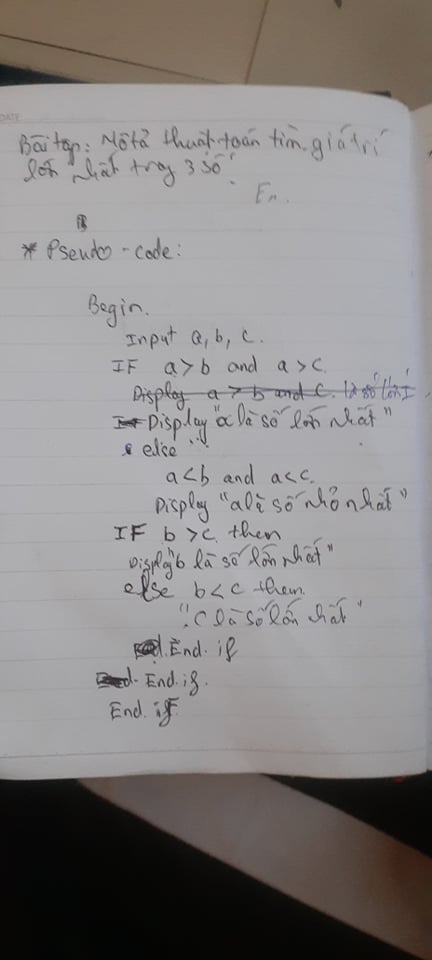 DATE
Bài tập: Mô tả thuật toán tìm giá trị
lớn nhất trong 3 số.
* Pseudo-code:
Begin.
Input a, b, c.
IF a > b and a > c.
Display a > b and c. là số lớn
Display "a là số lớn nhất"
else
a < b and a < c.
Display "a là số nhỏ nhất"
IF b > c then
Display "b là số lớn nhất"
else b < c then.
"c là số lớn nhất"
End. if
End. if.
End. if